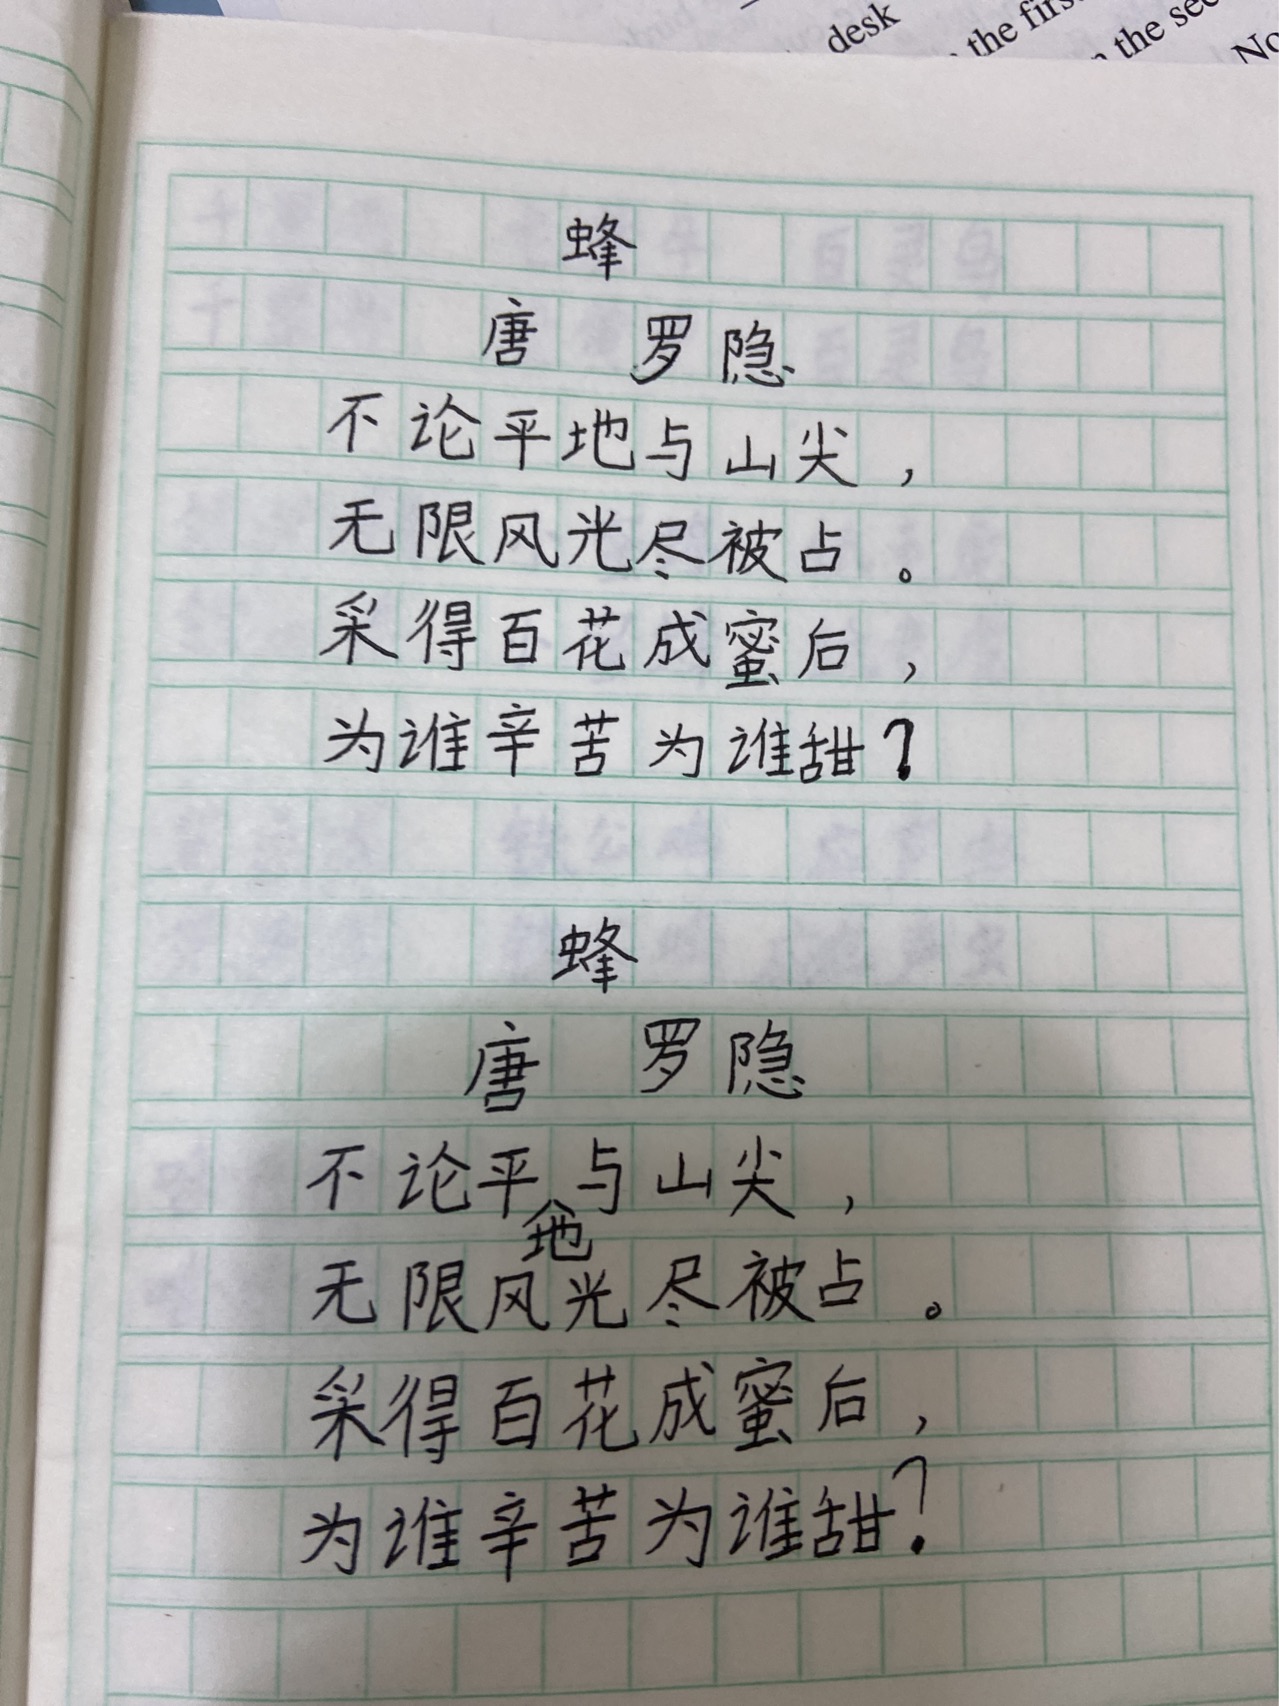 desk
the firs
the sec
No
蜂
唐 罗隐
不论平地与山尖，
无限风光尽被占。
采得百花成蜜后，
为谁辛苦为谁甜？
蜂
唐 罗隐
不论平地与山尖，
无限风光尽被占。
采得百花成蜜后，
为谁辛苦为谁甜？